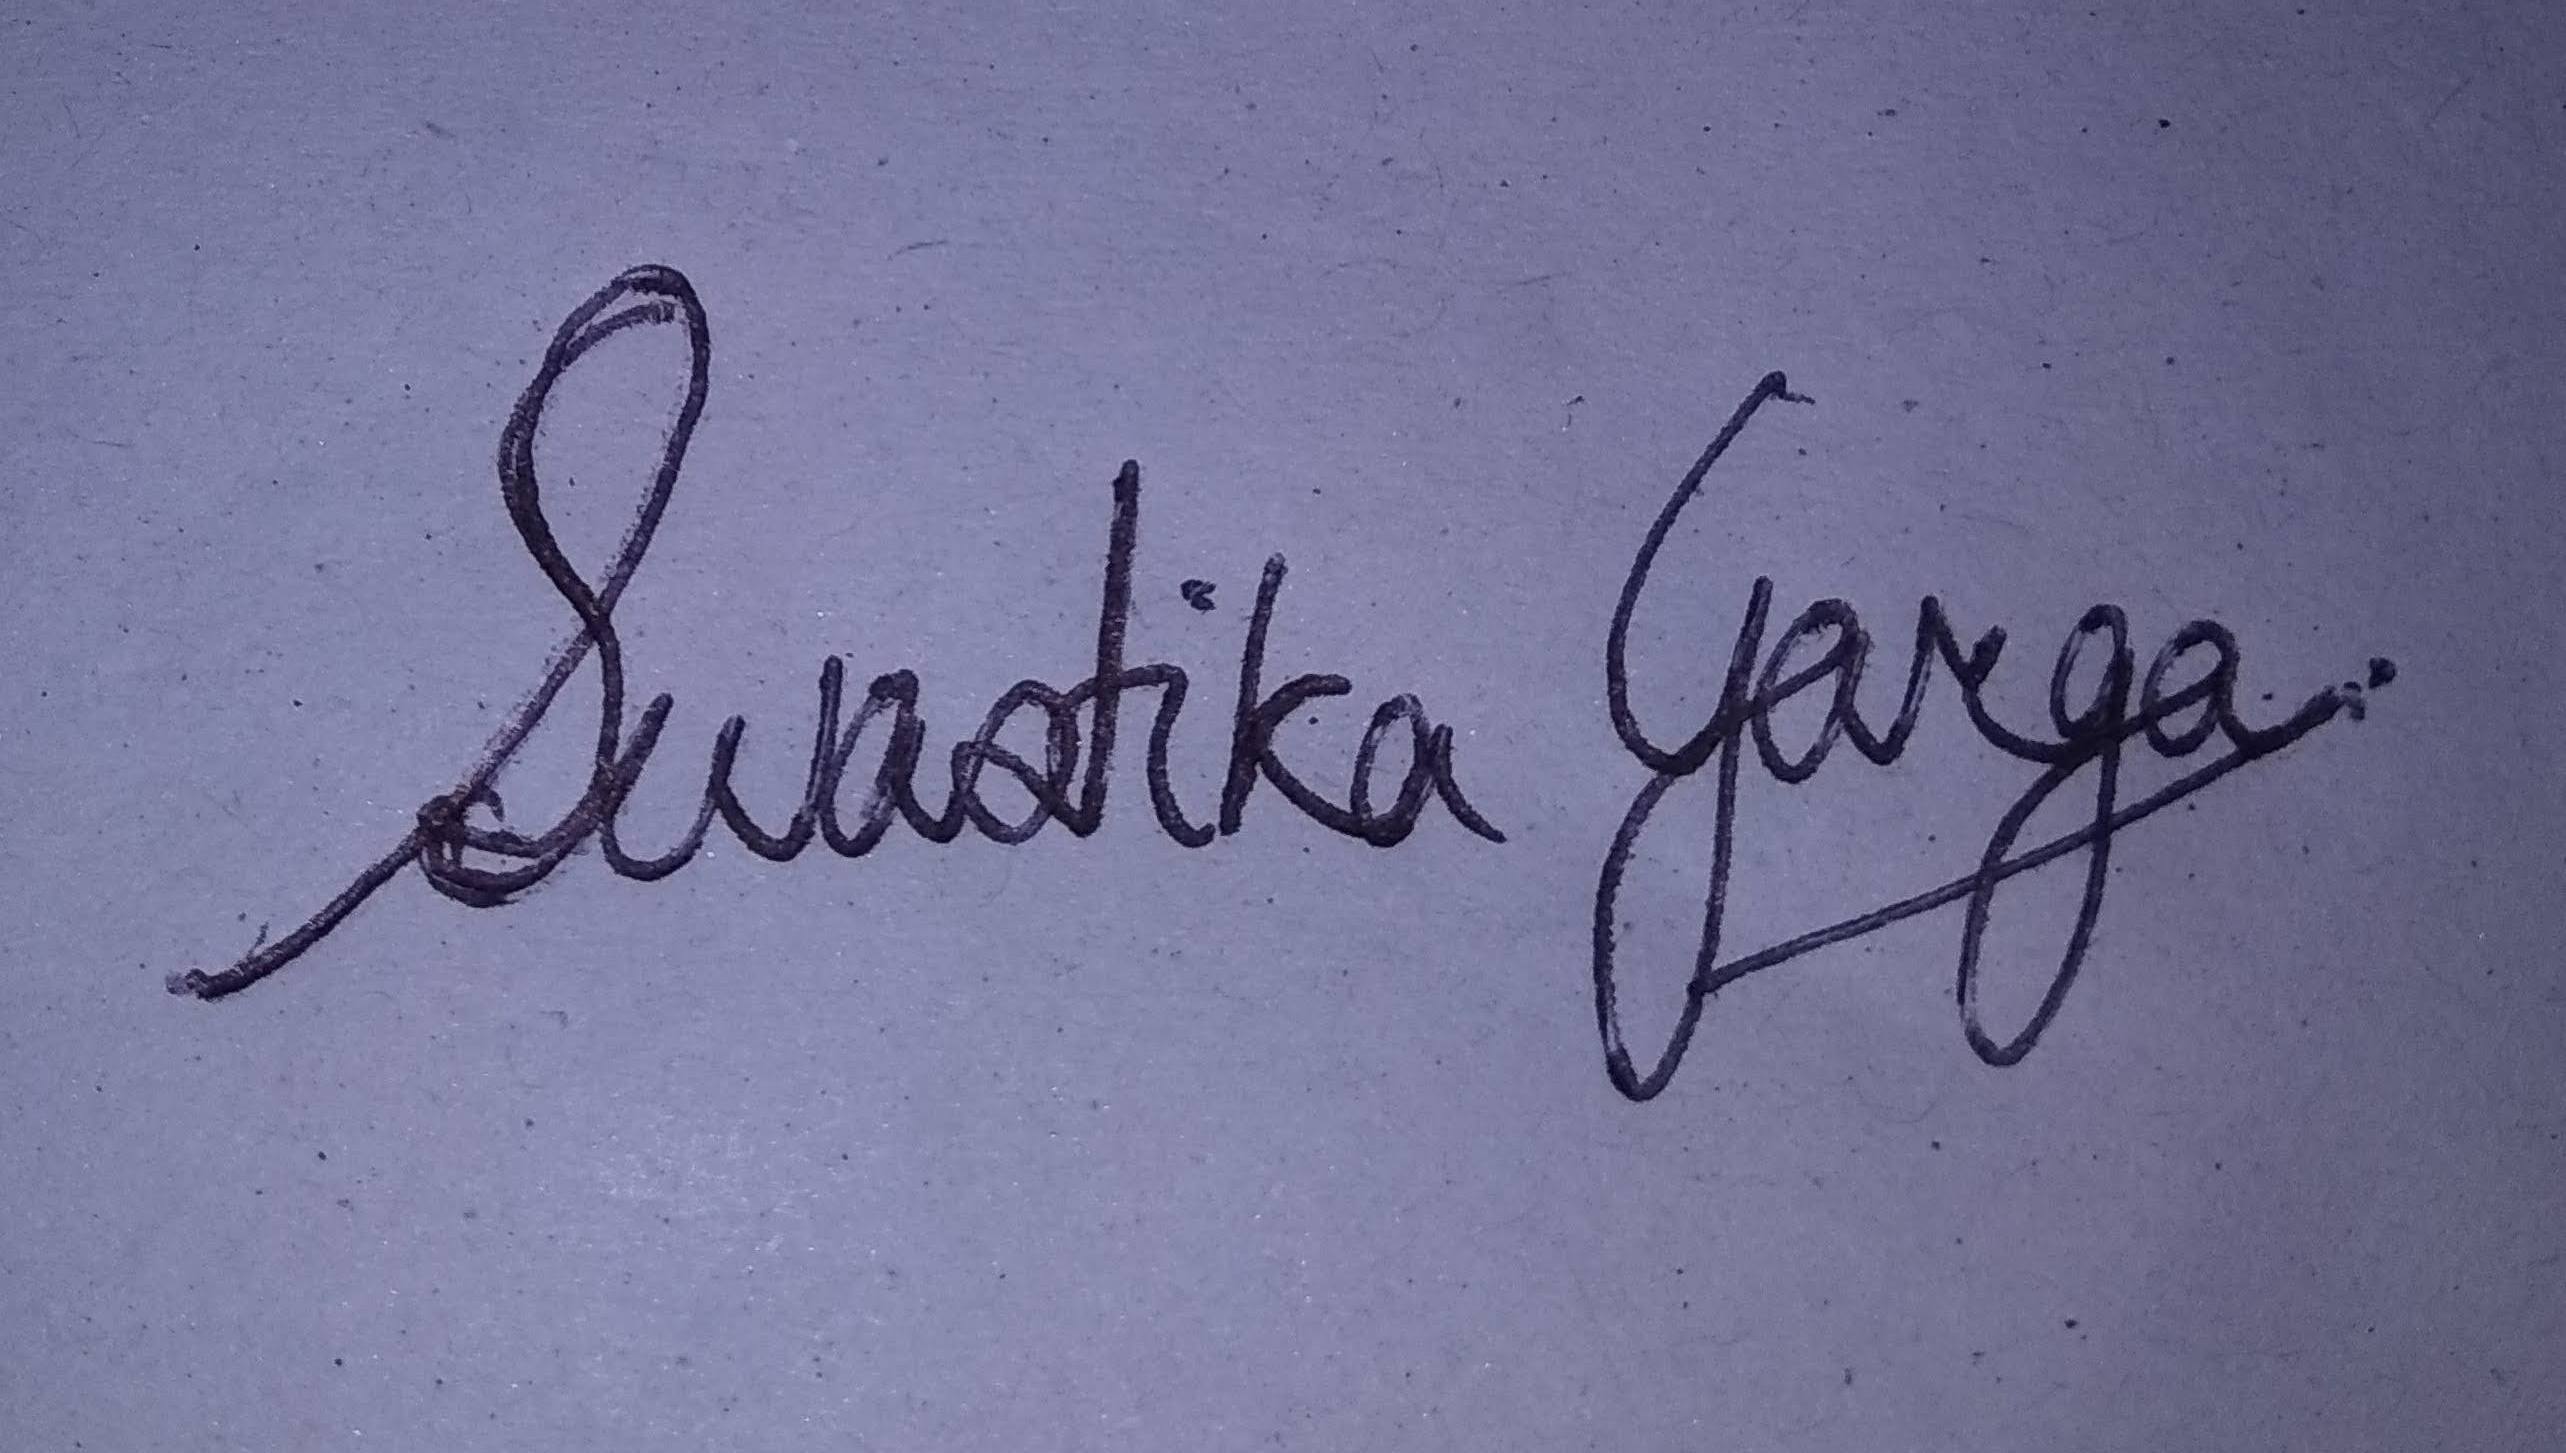 Swastika Garga.